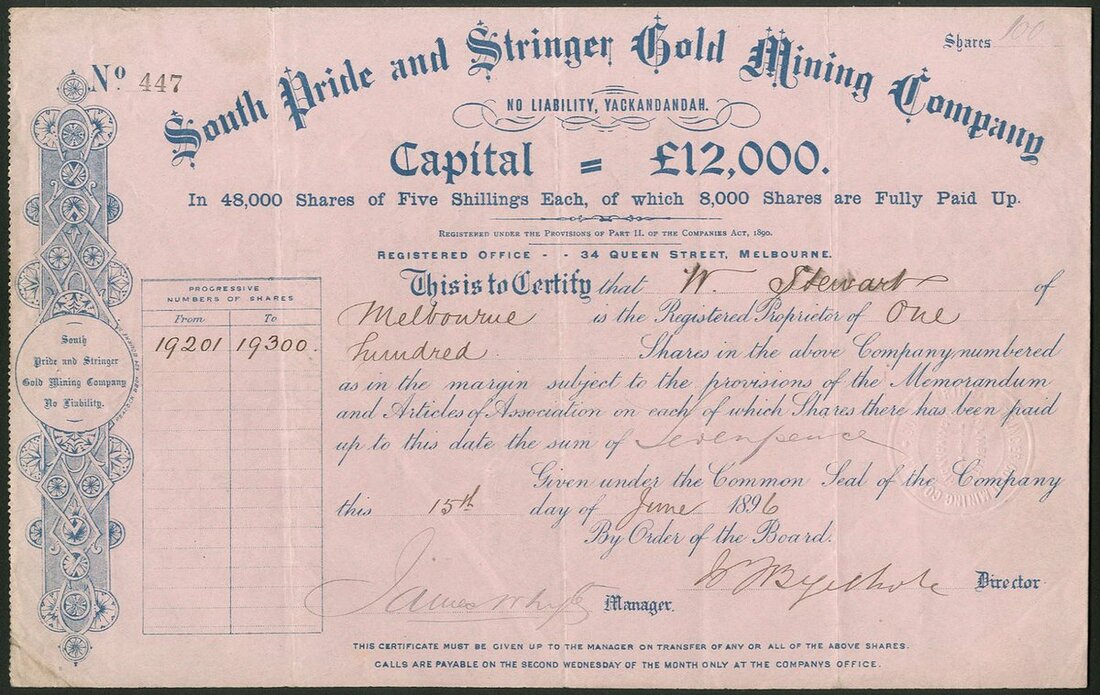 Shares 100
No 447
South Pride and Stringer Gold Mining Company
NO LIABILITY, YACKANDANDAH.
Capital = £12,000.
In 48,000 Shares of Five Shillings Each, of which 8,000 Shares are Fully Paid Up.
Registered under the Provisions of Part II. of the Companies Act, 1890.
REGISTERED OFFICE - - 34 QUEEN STREET, MELBOURNE.
PROGRESSIVE
NUMBERS OF SHARES
From To
19201 19300
South
Pride and Stringer
Gold Mining Company
No Liability.
This is to Certify that W. Stewart of
Melbourne is the Registered Proprietor of One
hundred Shares in the above Company numbered
as in the margin subject to the provisions of the Memorandum
and Articles of Association on each of which Shares there has been paid
up to this date the sum of Sevenpence
Given under the Common Seal of the Company
this 15th day of June 1896
By Order of the Board.
Director
James Whyte Manager.
THIS CERTIFICATE MUST BE GIVEN UP TO THE MANAGER ON TRANSFER OF ANY OR ALL OF THE ABOVE SHARES.
CALLS ARE PAYABLE ON THE SECOND WEDNESDAY OF THE MONTH ONLY AT THE COMPANYS OFFICE.